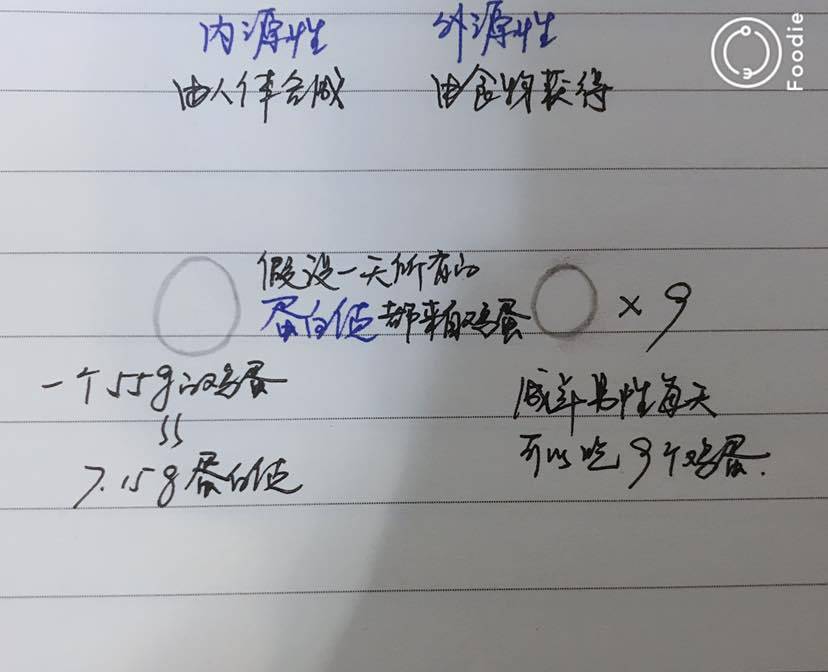 内源性 外源性
由人体合成 由食物获得
Foodie
假设一天所有的
蛋白质都来自鸡蛋 × 9
一个55g的鸡蛋
≈
7.15g蛋白质
成年男性每天
可以吃9个鸡蛋.